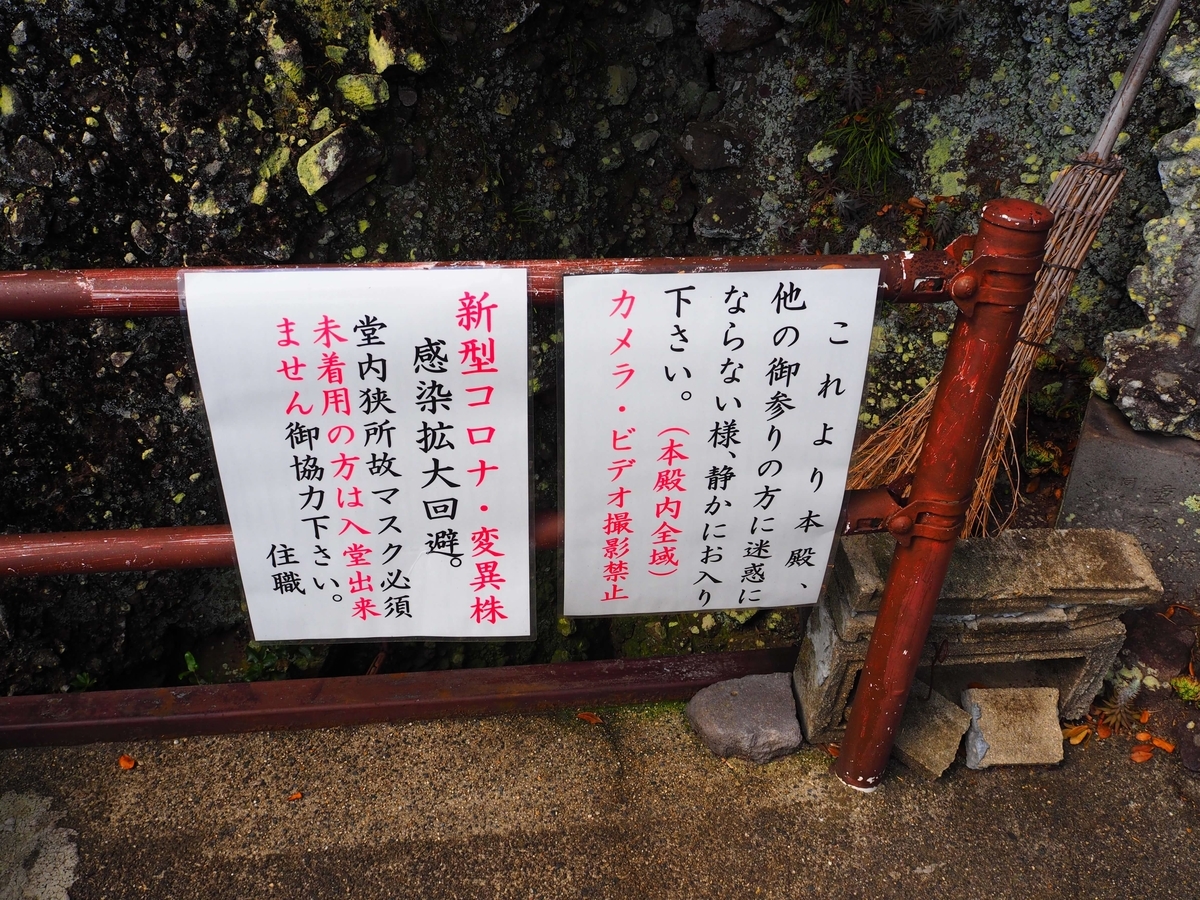 これより本殿、
他の御参りの方に迷惑に
ならない様、静かにお入り
下さい。
(本殿内全域)
カメラ・ビデオ撮影禁止
新型コロナ・変異株
感染拡大回避。
堂内狭所故マスク必須
未着用の方は入堂出来
ません御協力下さい。
住職